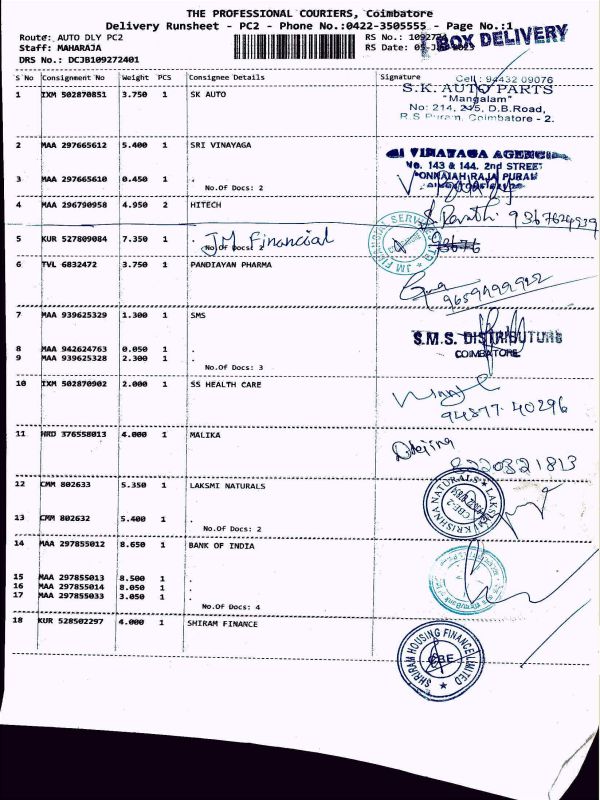 THE PROFESSIONAL COURIERS, Coimbatore
Delivery Runsheet - PC2 - Phone No.:0422-3505555 - Page No.:1
Route: AUTO DLY PC2
Staff: MAHARAJA
DRS No.: DCJB109272401
RS No.:
RS Date:
BOX DELIVERY
S No Consignment No Weight PCS Consignee Details Signature
1 IXM 502870851 3.750 1 SK AUTO
Cell : 94432 09076
S.K. AUTO PARTS
"Mangalam"
No: 214, 215, D.B.Road,
R.S Puram, Coimbatore - 2.
2 MAA 297665612 5.400 1 SRI VINAYAGA
VINAYAGA AGENCIES
No. 143 & 144, 2nd STREET
PONNAIAH RAJA PURAM
3 MAA 297665610 0.450 1 .
No.Of Docs: 2
4 MAA 296790958 4.950 2 HITECH
5 KUR 527809084 7.350 1 .
No.Of Docs: 2
JM Financial
93676
6 TVL 6832472 3.750 1 PANDIAYAN PHARMA
7 MAA 939625329 1.300 1 SMS
S.M.S. DISTRIBUTORS
COIMBATORE
8 MAA 942624763 0.050 1 .
9 MAA 939625328 2.300 1 .
No.Of Docs: 3
10 IXM 502870902 2.000 1 SS HEALTH CARE
94877 40296
11 HRD 376558013 4.000 1 MALIKA
8220321813
12 CMM 802633 5.350 1 LAKSMI NATURALS
LAKSHMI KRISHNA NATURALS
CBE-2
13 CMM 802632 5.400 1 .
No.Of Docs: 2
14 MAA 297855012 8.650 1 BANK OF INDIA
15 MAA 297855013 8.500 1 .
16 MAA 297855014 8.050 1 .
17 MAA 297855033 3.050 1 .
No.Of Docs: 4
18 KUR 528502297 4.000 1 SHIRAM FINANCE
SHRIRAM HOUSING FINANCE LIMITED
CBE